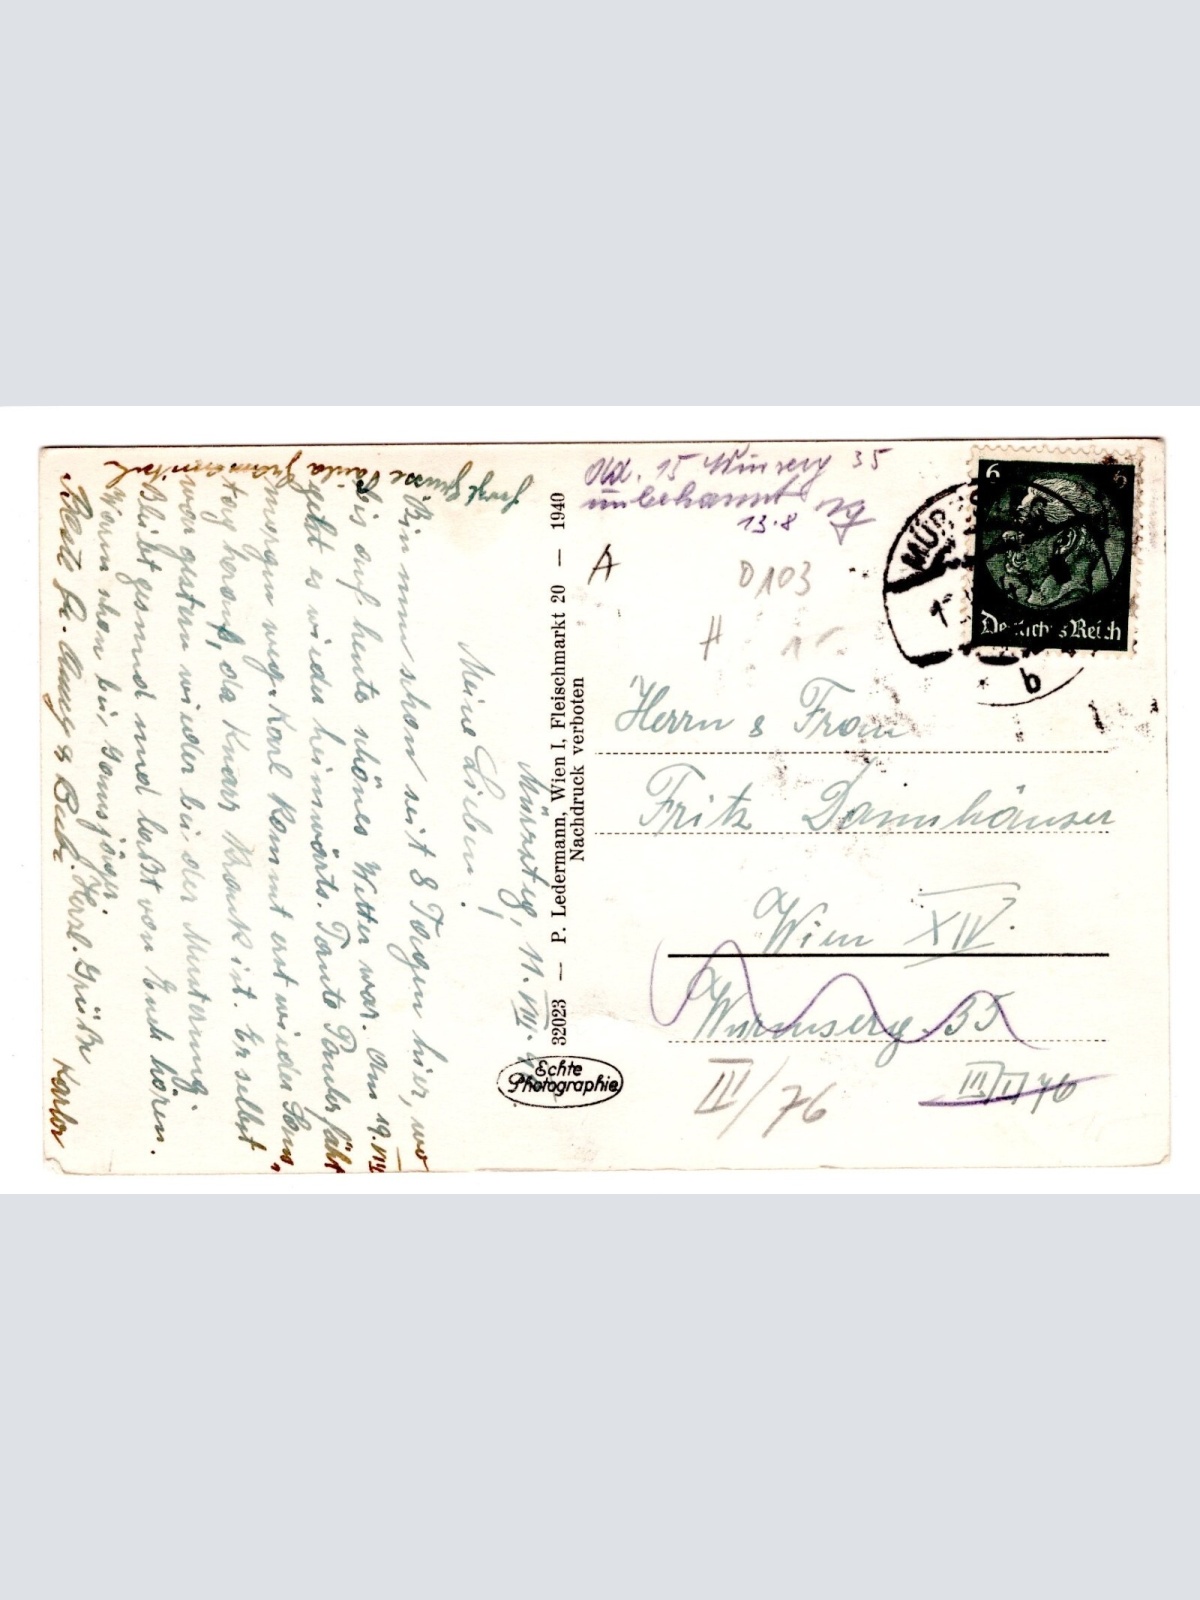 Mürzsteg, 11. VIII. 40
Meine Lieben!
Bin nun schon seit 8 Tagen hier, wo
bis auf heute schönes Wetter war. Am 19. VIII
geht es wieder heimwärts. Tante Paula fährt
morgen weg. Karl kommt erst wieder Sams„
tag herauf, da Knarz krank ist. Er selbst
war gestern wieder bei der Musterung.
Bleibt gesund und laßt von Euch hören.
Waren schon bei Gamsjäger. Herzl. Grüße
Karler
Herzl. Grüsse Paula
32023 — P. Ledermann, Wien I, Fleischmarkt 20 — 1940
Nachdruck verboten
Echte
Photographie
15 35
unbekannt
13.8
A
D103
H
6 6
Deutsches Reich
MÜRZ
b
Herrn & Frau
Fritz Dannhäuser
Wien XIV.
Wurmserg. 35
III/76
III/II/76